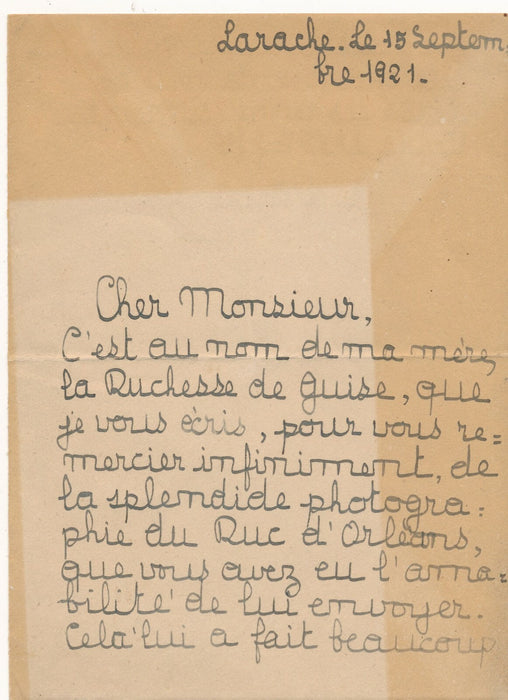 Larache. Le 15 Septem
bre 1921.
Cher Monsieur,
C'est au nom de ma mère,
la Duchesse de Guise, que
je vous écris, pour vous re=
mercier infiniment, de
la splendide photogra=
phie du Duc d'Orléans,
que vous avez eu l'ama=
bilité de lui envoyer.
Cela lui a fait beaucoup